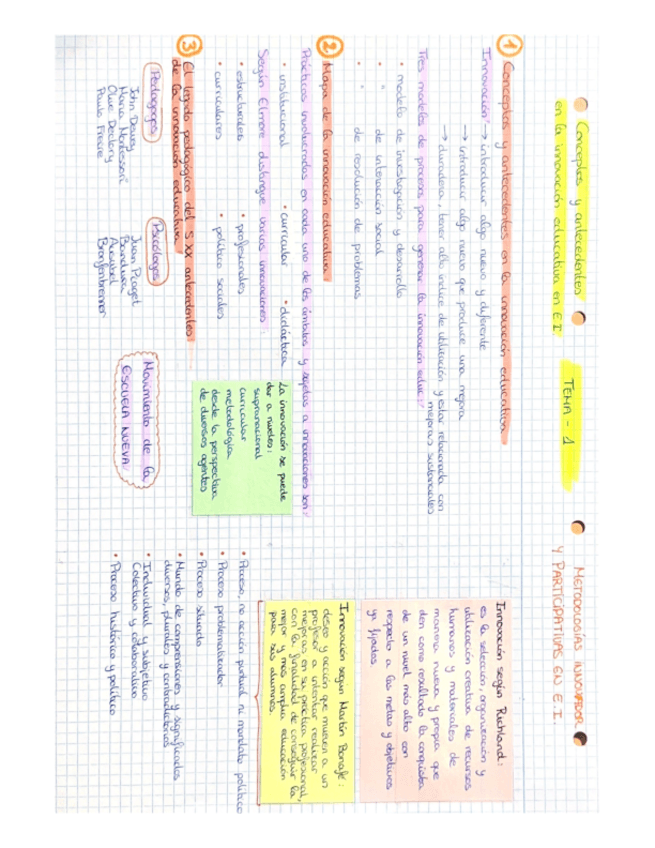 Conceptos y antecedentes
en la innovación educativa en E.I.
TEMA - 1
METODOLOGÍAS INNOVADOR
Y PARTICIPATIVAS EN E.I.
1 Conceptos y antecedentes en la innovación educativa
Innovación → introducir algo nuevo y diferente
→ introducir algo nuevo que produce una mejora
→ duradera, tener alto índice de utilización y estar relacionada con
mejoras sustanciales
Tres modelos de proceso para generar la innovación educ:
• modelo de investigación y desarrollo
• " de interacción social
• " de resolución de problemas
2 Mapa de la innovación educativa
Prácticas involucradas en cada uno de los ámbitos y sujetas a innovaciones son:
• institucional • curricular • didáctica
Según Elmore distingue varias innovaciones:
• estructurales • profesionales
• curriculares • político sociales
3 El legado pedagógico del S.XX antecedentes
de la innovación educativa
Pedagogos
John Dewey
Maria Montessori
Olive Decroly
Paulo Freire
Psicólogos
Juan Piaget
Bandura
Ausubel
Bronfenbrenner
Movimiento de la
ESCUELA NUEVA
La innovación se puede
dar a niveles:
supranacional
curricular
metodológica
desde la perspectiva
de diversos agentes
Innovación según Richland:
es la selección, organización y
utilización creativa de recursos
humanos y materiales de
manera nueva y propia que
den como resultado la conquista
de un nivel más alto con
respecto a las metas y objetivos
ya fijados.
Innovación según Martín Bonafé:
deseo y acción que mueven a un
profesor a intentar realizar
mejoras en su práctica profesional,
con la finalidad de conseguir la
mejor y mas amplia educación
para sus alumnos.
• Proceso, no acción puntual ni mandato político
• Proceso problematizador
• Proceso situado
• Mundo de comprensiones y significados
diversos, plurales y contradictorios
• Individual y subjetivo
Colectivo y colaborativo
• Proceso histórico y político